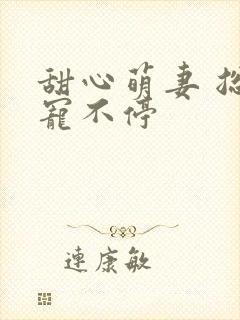 甜心萌妻
寵不停
連康敏